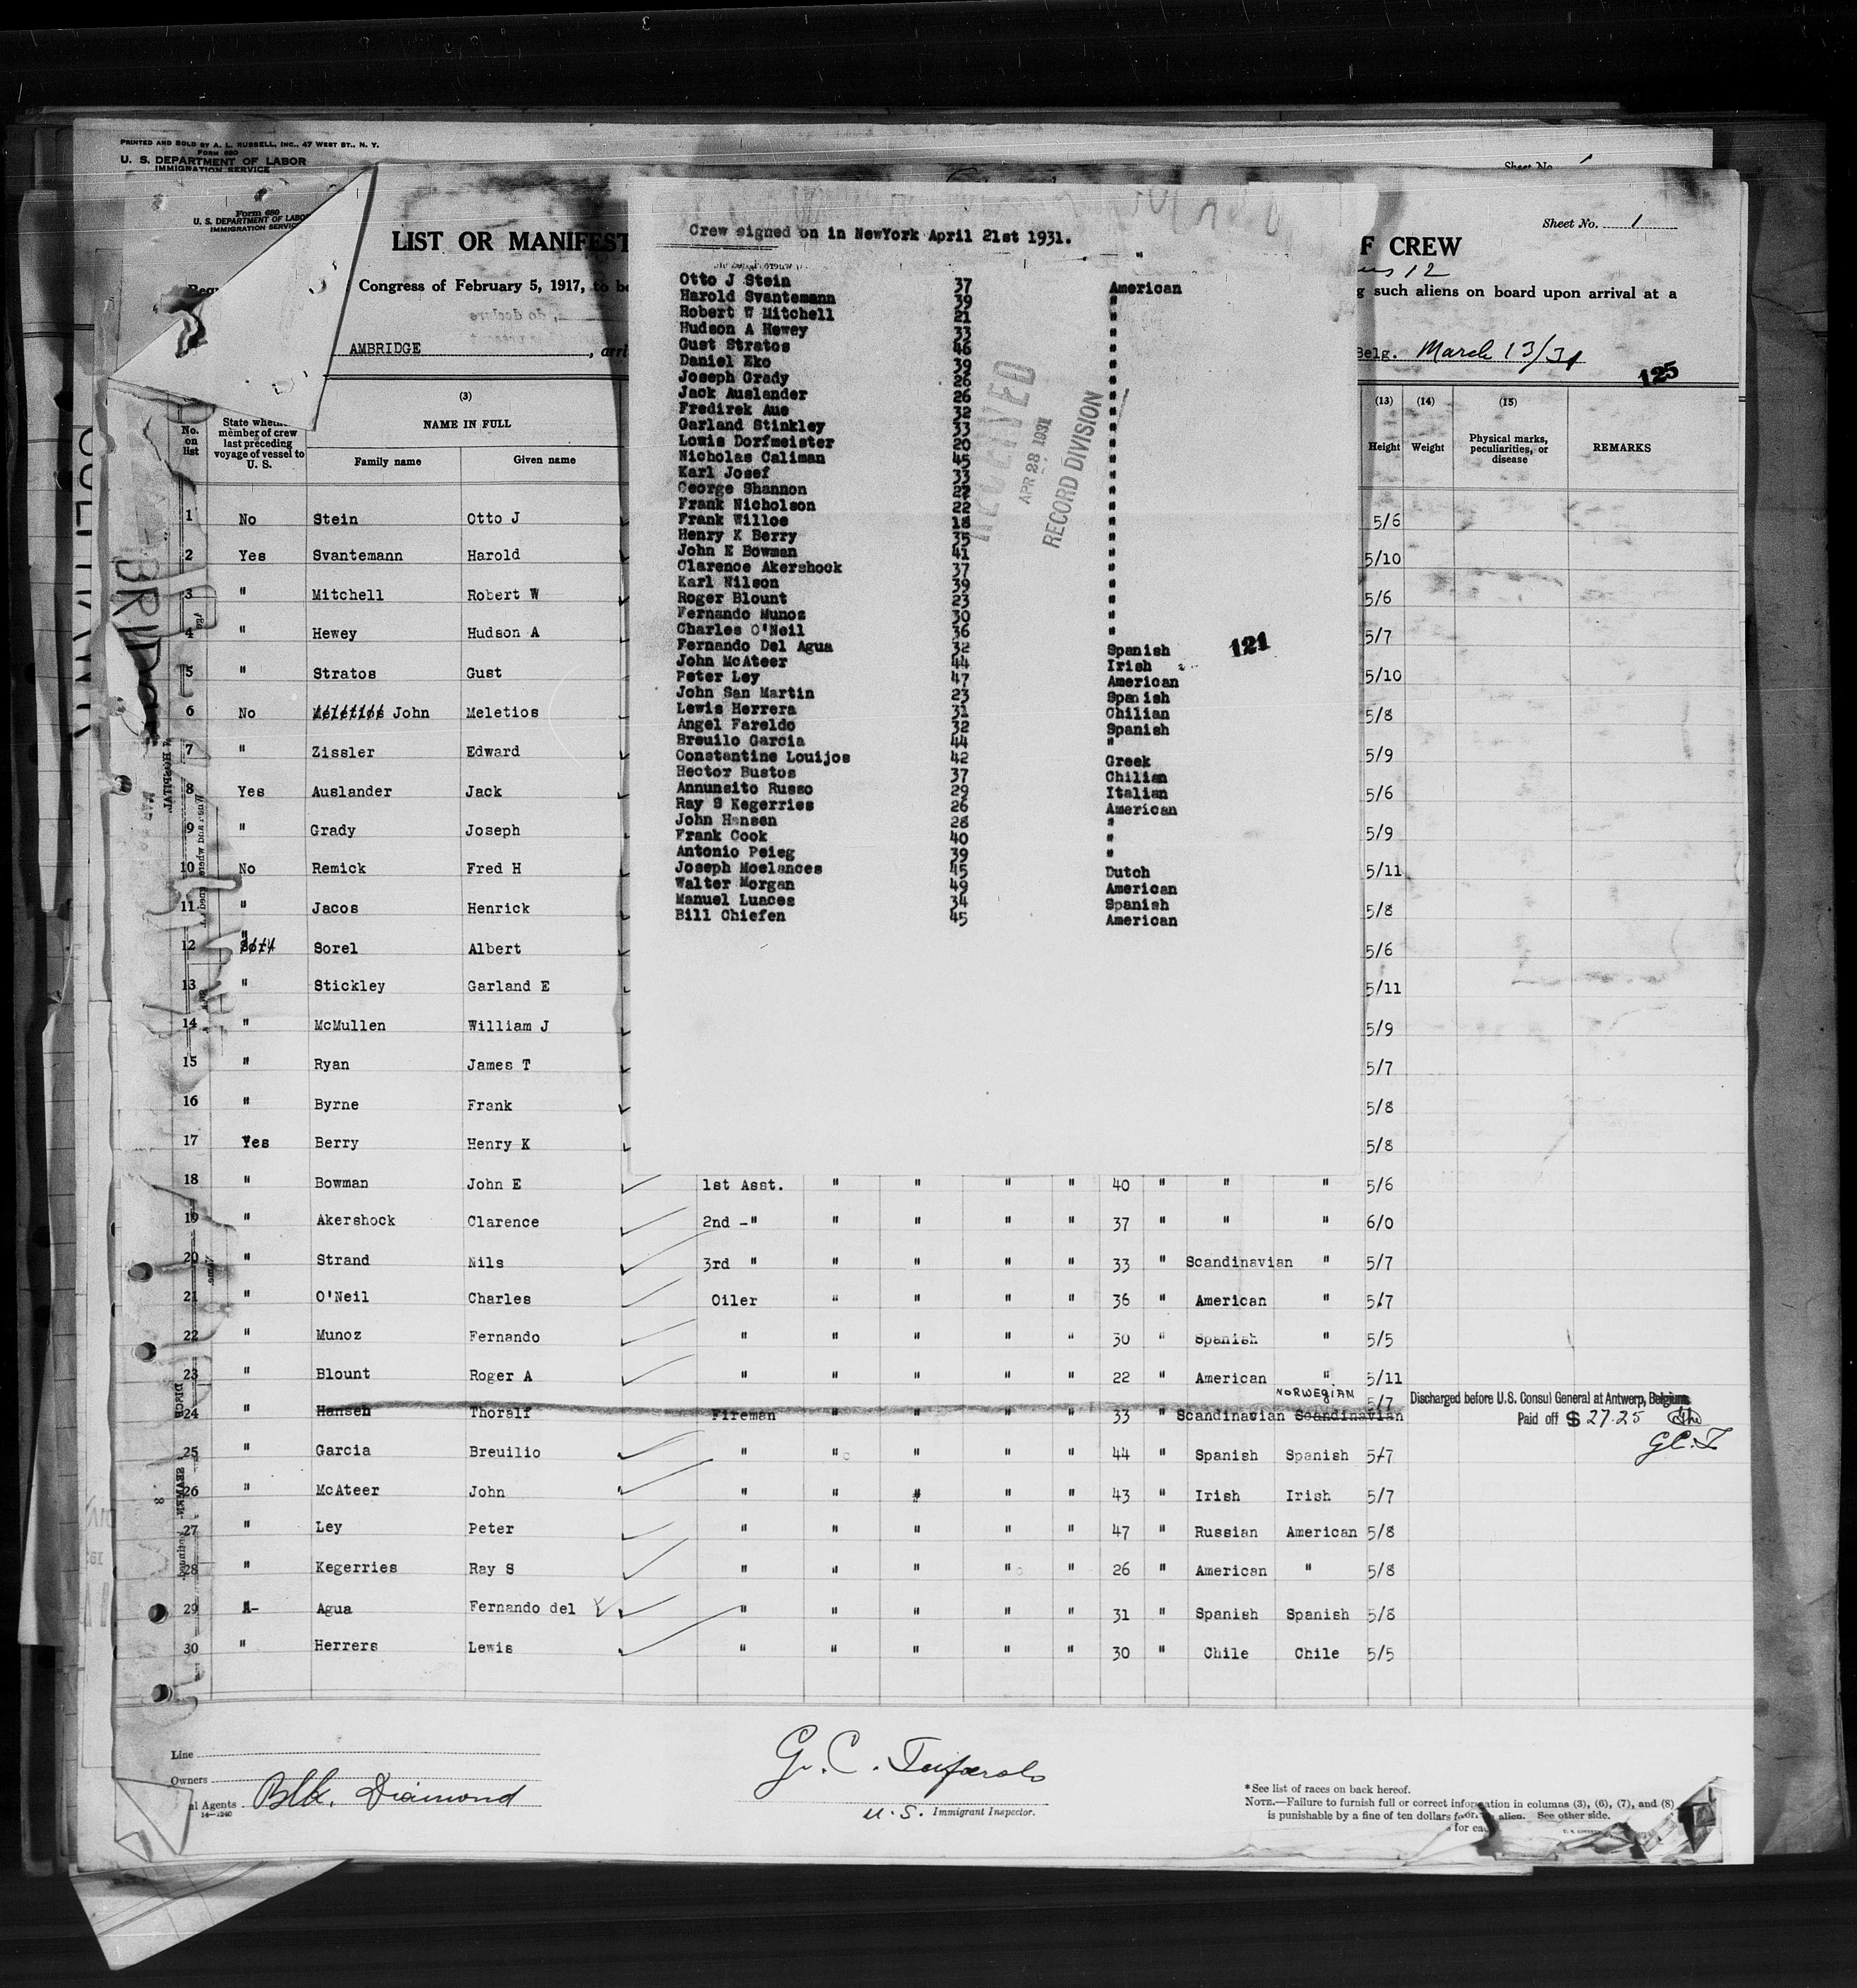 PRINTED AND SOLD BY A. L. RUSSELL, INC., 47 WEST ST., N. Y.
Form 680
U. S. DEPARTMENT OF LABOR
IMMIGRATION SERVICE
Sheet No.
Form 680
U. S. DEPARTMENT OF LABOR
IMMIGRATION SERVICE
Sheet No. 1
LIST OR MANIFEST
F CREW
Congress of February 5, 1917, to be
g such aliens on board upon arrival at a
AMBRIDGE, arri
Belg. March 13/31
125
Crew signed on in NewYork April 21st 1931.
Otto J Stein 37 American
Harold Svantemann 39 "
Robert W Mitchell 21 "
Hudson A Hewey 33 "
Gust Stratos 46 "
Daniel Eko 39 "
Joseph Grady 26 "
Jack Auslander 26 "
Fredirek Aue 32 "
Garland Stinkley 33 "
Lowis Dorfmeister 20 "
Nicholas Caliman 45 "
Karl Josef 33 "
George Shannon 27 "
Frank Nicholson 22 "
Frank Willoe 18 "
Henry K Berry 35 "
John E Bowman 41 "
Clarence Akershock 37 "
Karl Nilson 39 "
Roger Blount 23 "
Fernando Munoz 30 "
Charles O'Neil 36 "
Fernando Del Agua 32 Spanish
John McAteer 44 Irish
Peter Ley 47 American
John San Martin 23 Spanish
Lewis Herrera 31 Chilian
Angel Fareldo 32 Spanish
Breuilo Garcia 44 "
Constantine Louijos 42 Greek
Hector Bustos 37 Chilian
Annunsito Russo 29 Italian
Ray S Kegerries 26 American
John Hansen 28 "
Frank Cook 40 "
Antonio Peieg 39 "
Joseph Moelances 45 Dutch
Walter Morgan 49 American
Manuel Luaces 34 Spanish
Bill Chiefen 45 American
121
RECEIVED
APR 28 1931
RECORD DIVISION
(3) (13) (14) (15)
No. on list
State whether member of crew last preceding voyage of vessel to U. S.
NAME IN FULL
Family name Given name
Height Weight Physical marks, peculiarities, or disease REMARKS
1 No Stein Otto J 5/6
2 Yes Svantemann Harold 5/10
3 " Mitchell Robert W 5/6
4 " Hewey Hudson A 5/7
5 " Stratos Gust 5/10
6 No Meletios John Meletios 5/8
7 " Zissler Edward 5/9
8 Yes Auslander Jack 5/6
9 " Grady Joseph 5/9
10 No Remick Fred H 5/11
11 " Jacos Henrick 5/8
12 " Sorel Albert 5/6
13 " Stickley Garland E 5/11
14 " McMullen William J 5/9
15 " Ryan James T 5/7
16 " Byrne Frank 5/8
17 Yes Berry Henry K 5/8
18 " Bowman John E 1st Asst. " " " " 40 " " " 5/6
19 " Akershock Clarence 2nd -" " " " " 37 " " " 6/0
20 " Strand Nils 3rd " " " " " 33 " Scandinavian " 5/7
21 " O'Neil Charles Oiler " " " " 36 " American " 5/7
22 " Munoz Fernando " " " " " 30 " Spanish " 5/5
23 " Blount Roger A " " " " " 22 " American " 5/11
24 " Hansen Thoralf Fireman " " " " 33 " Scandinavian Scandinavian NORWEGIAN 5/7 Discharged before U.S. Consul General at Antwerp, Belgium
Paid off $ 27.25
G.C.T
25 " Garcia Breuilio " " " " " 44 " Spanish Spanish 5/7
26 " McAteer John " " " " " 43 " Irish Irish 5/7
27 " Ley Peter " " " " " 47 " Russian American 5/8
28 " Kegerries Ray S " " " " " 26 " American " 5/8
29 Agua Fernando del " " " " " 31 " Spanish Spanish 5/8
30 " Herrers Lewis " " " " " 30 " Chile Chile 5/5
Line
Owners
al Agents Blk. Diamond
14-1240
G. C.
U. S. Immigrant Inspector.
* See list of races on back hereof.
NOTE.—Failure to furnish full or correct information in columns (3), (6), (7), and (8)
is punishable by a fine of ten dollars for alien. See other side.